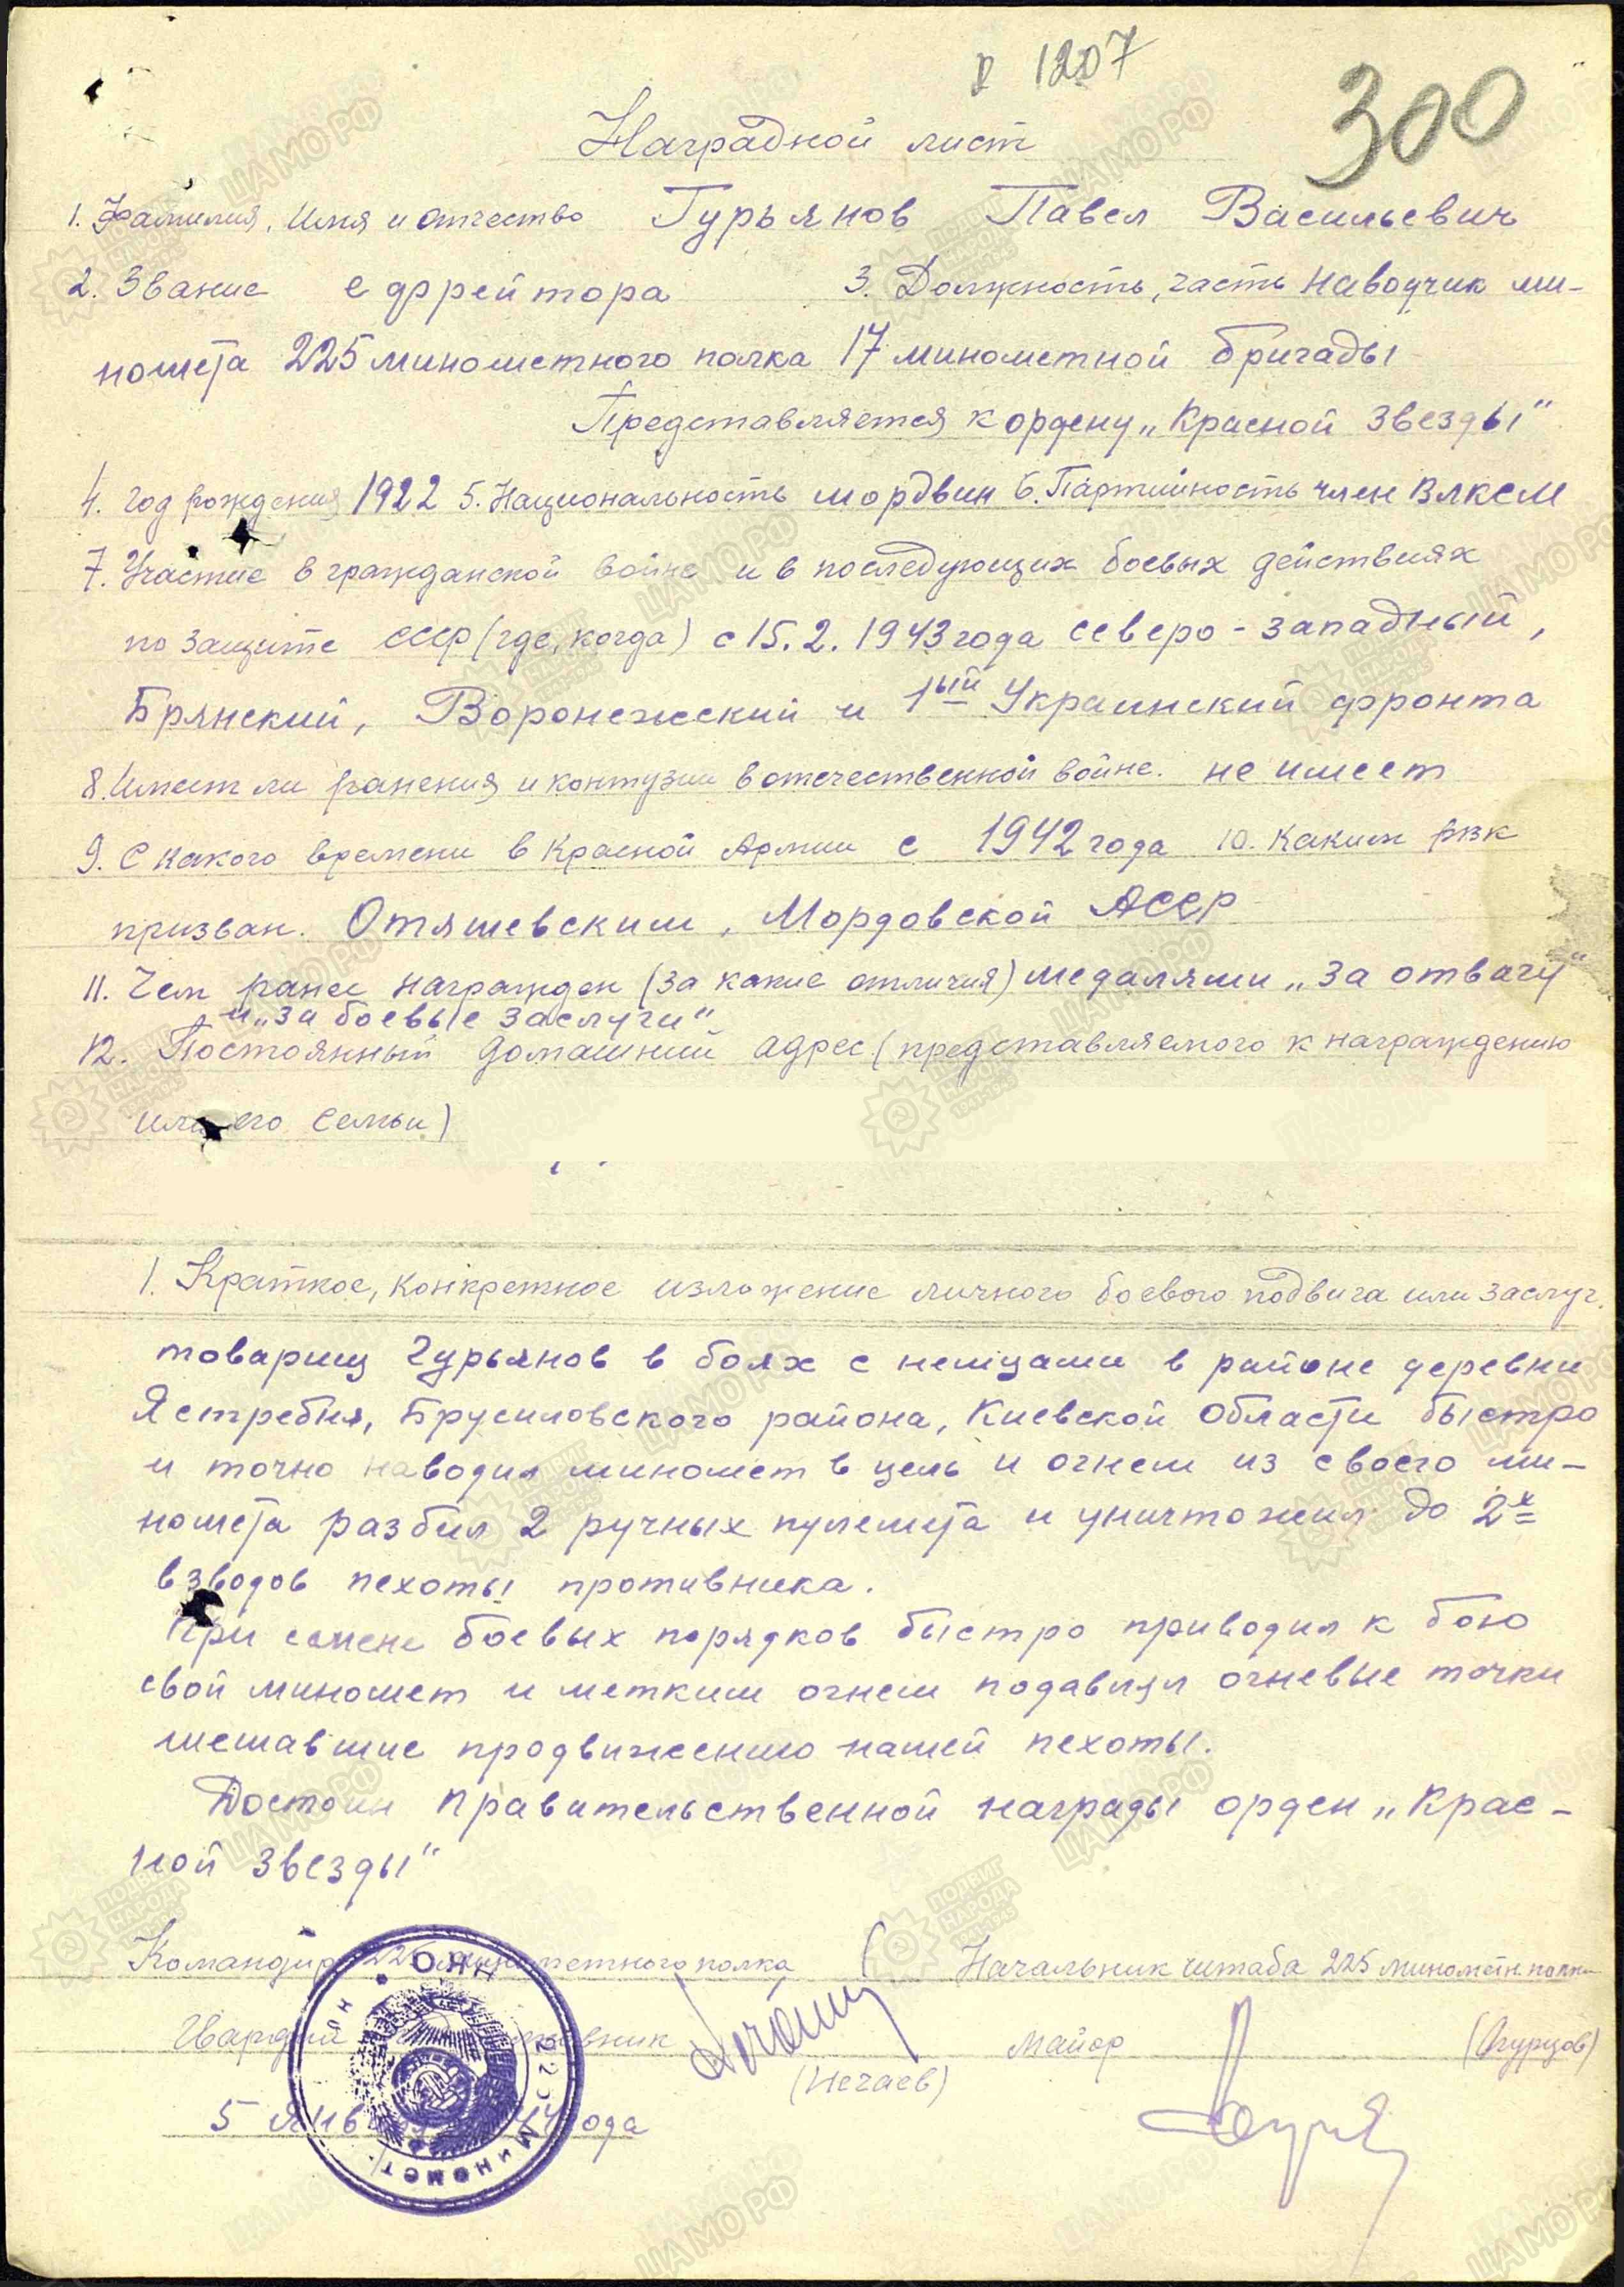 1207
300
Наградной лист
1. Фамилия, Имя и отчество Гурьянов Павел Васильевич
2. Звание ефрейтора 3. Должность, часть наводчик ми-
номета 225 минометного полка 17 минометной бригады
Представляется к ордену „Красной Звезды"
4. год рождения 1922 5. Национальность мордвин 6. Партийность член ВЛКСМ
7. Участие в гражданской войне и в последующих боевых действиях
по защите СССР (где, когда) с 15.2.1943 года северо-западный,
Брянский, Воронежский и 1ый Украинский фронта
8. Имеет ли ранения и контузии в отечественной войне. не имеет
9. С какого времени в Красной Армии с 1942 года 10. Каким рвк
призван. Отяшевским, Мордовской АССР
11. Чем ранее награжден (за какие отличия) медалями „За отвагу"
и „За боевые заслуги"
12. Постоянный домашний адрес (представляемого к награждению
или его семьи)
1. Краткое, конкретное изложение личного боевого подвига или заслуг.
товарищ Гурьянов в боях с немцами в районе деревни
Ястребня, Брусиловского района, Киевской области быстро
и точно наводил миномет в цель и огнем из своего ми-
номета разбил 2 ручных пулемета и уничтожил до 2х
взводов пехоты противника.
При смене боевых порядков быстро приводил к бою
свой миномет и метким огнем подавлял огневые точки
мешавшие продвижению нашей пехоты.
Достоин Правительственной награды орден „Крас-
ной Звезды"
Командир 225 минометного полка Начальник штаба 225 минометн. полка
Гвардии майор
(Нечаев) (Огурцов)
5 января 44 года
НКО
225 Миномет.
ПОДВИГ НАРОДА 1941-1945
ЦАМО РФ